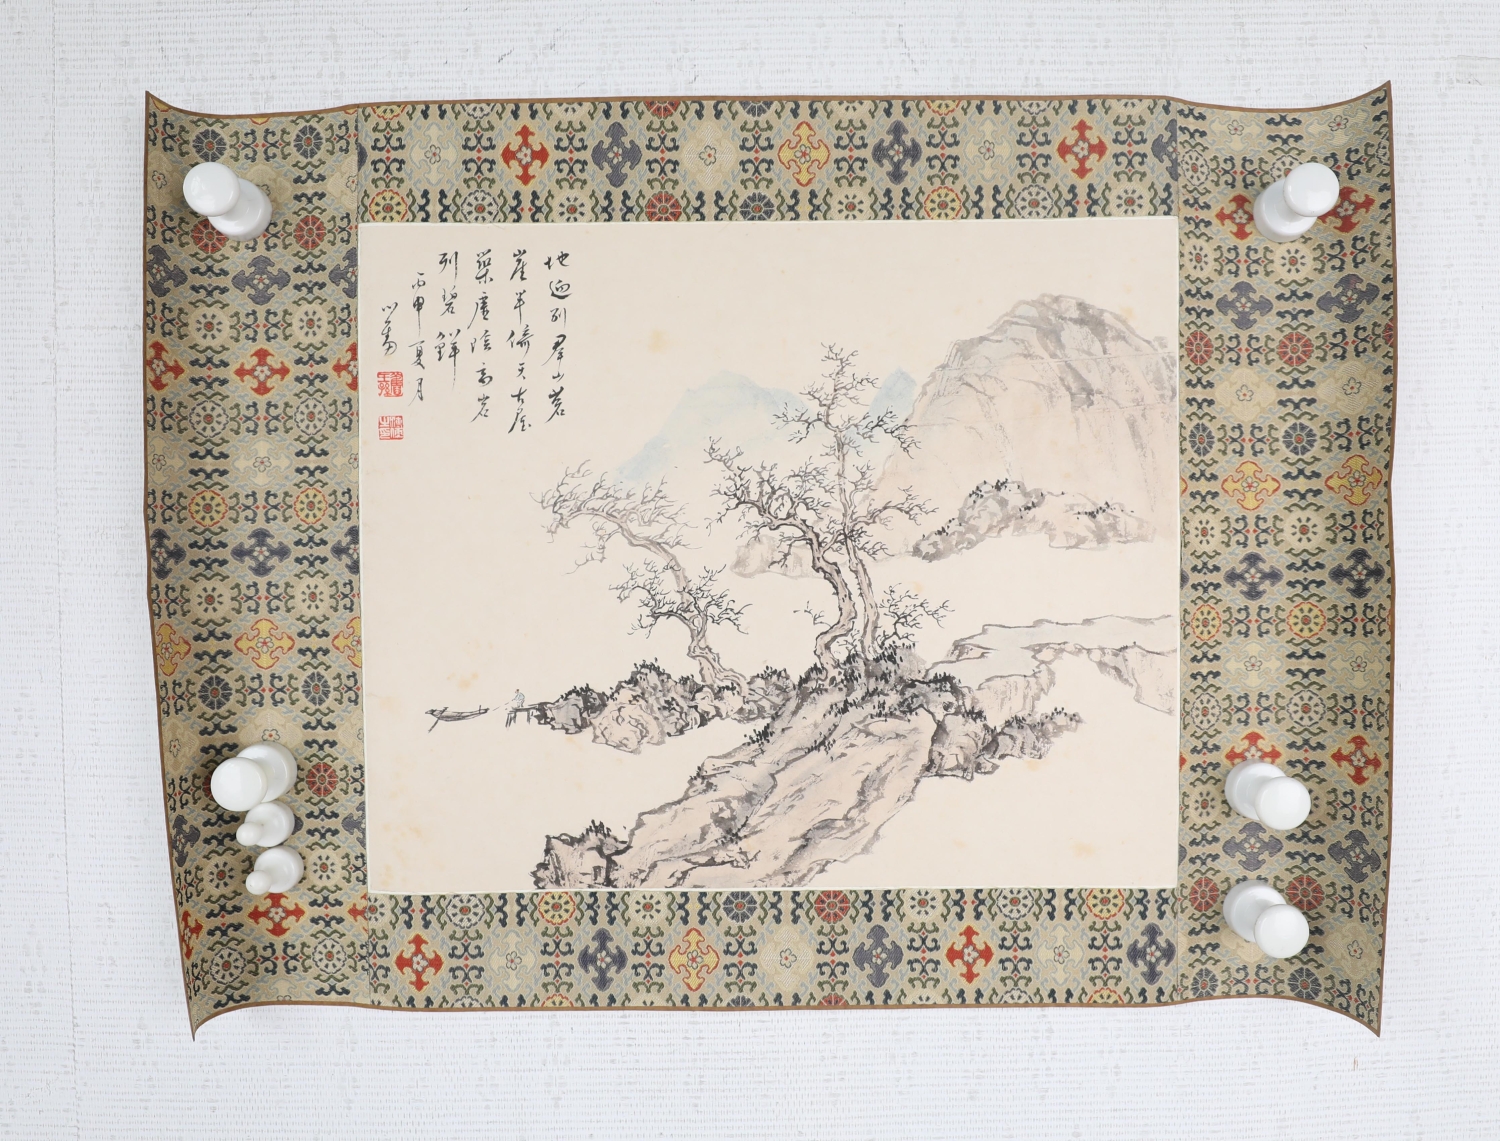 地迥列羣山蒼
崖半倚天古屋
藥廬陰高岩
列碧鮮
丙申夏月
心畬